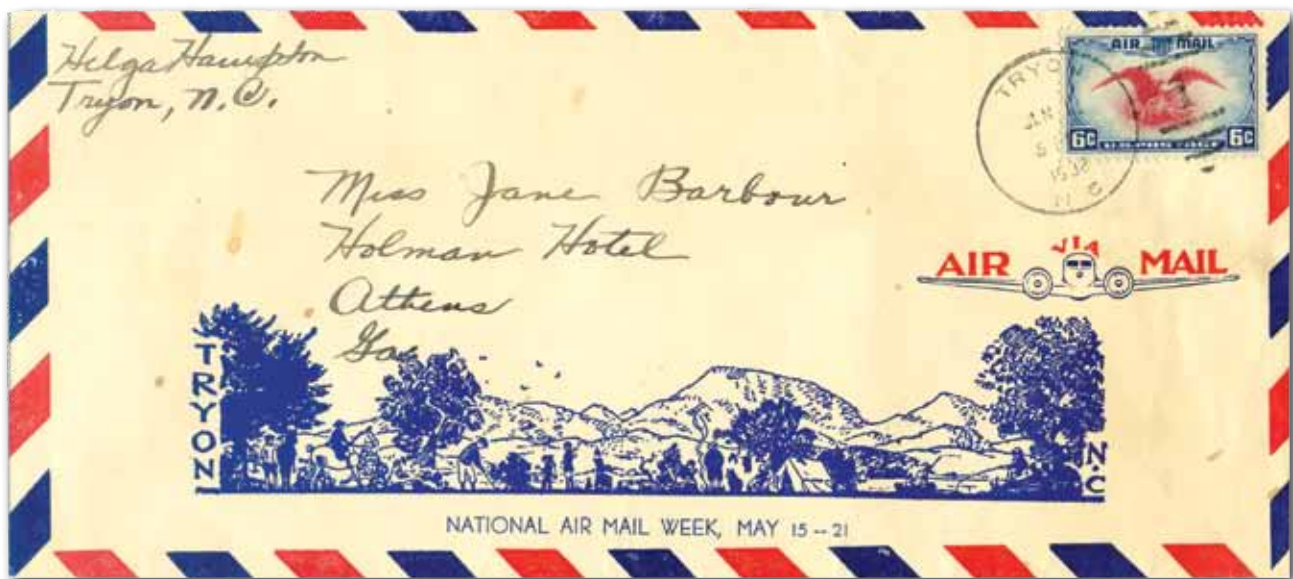 Helga Hampton
Tryon, N.C.
AIR MAIL
6¢ 6¢
TRYON
JUN
1938
N C
Miss Jane Barbour
Holman Hotel
Athens
Ga.
VIA
AIR MAIL
TRYON
N.C
NATIONAL AIR MAIL WEEK, MAY 15--21